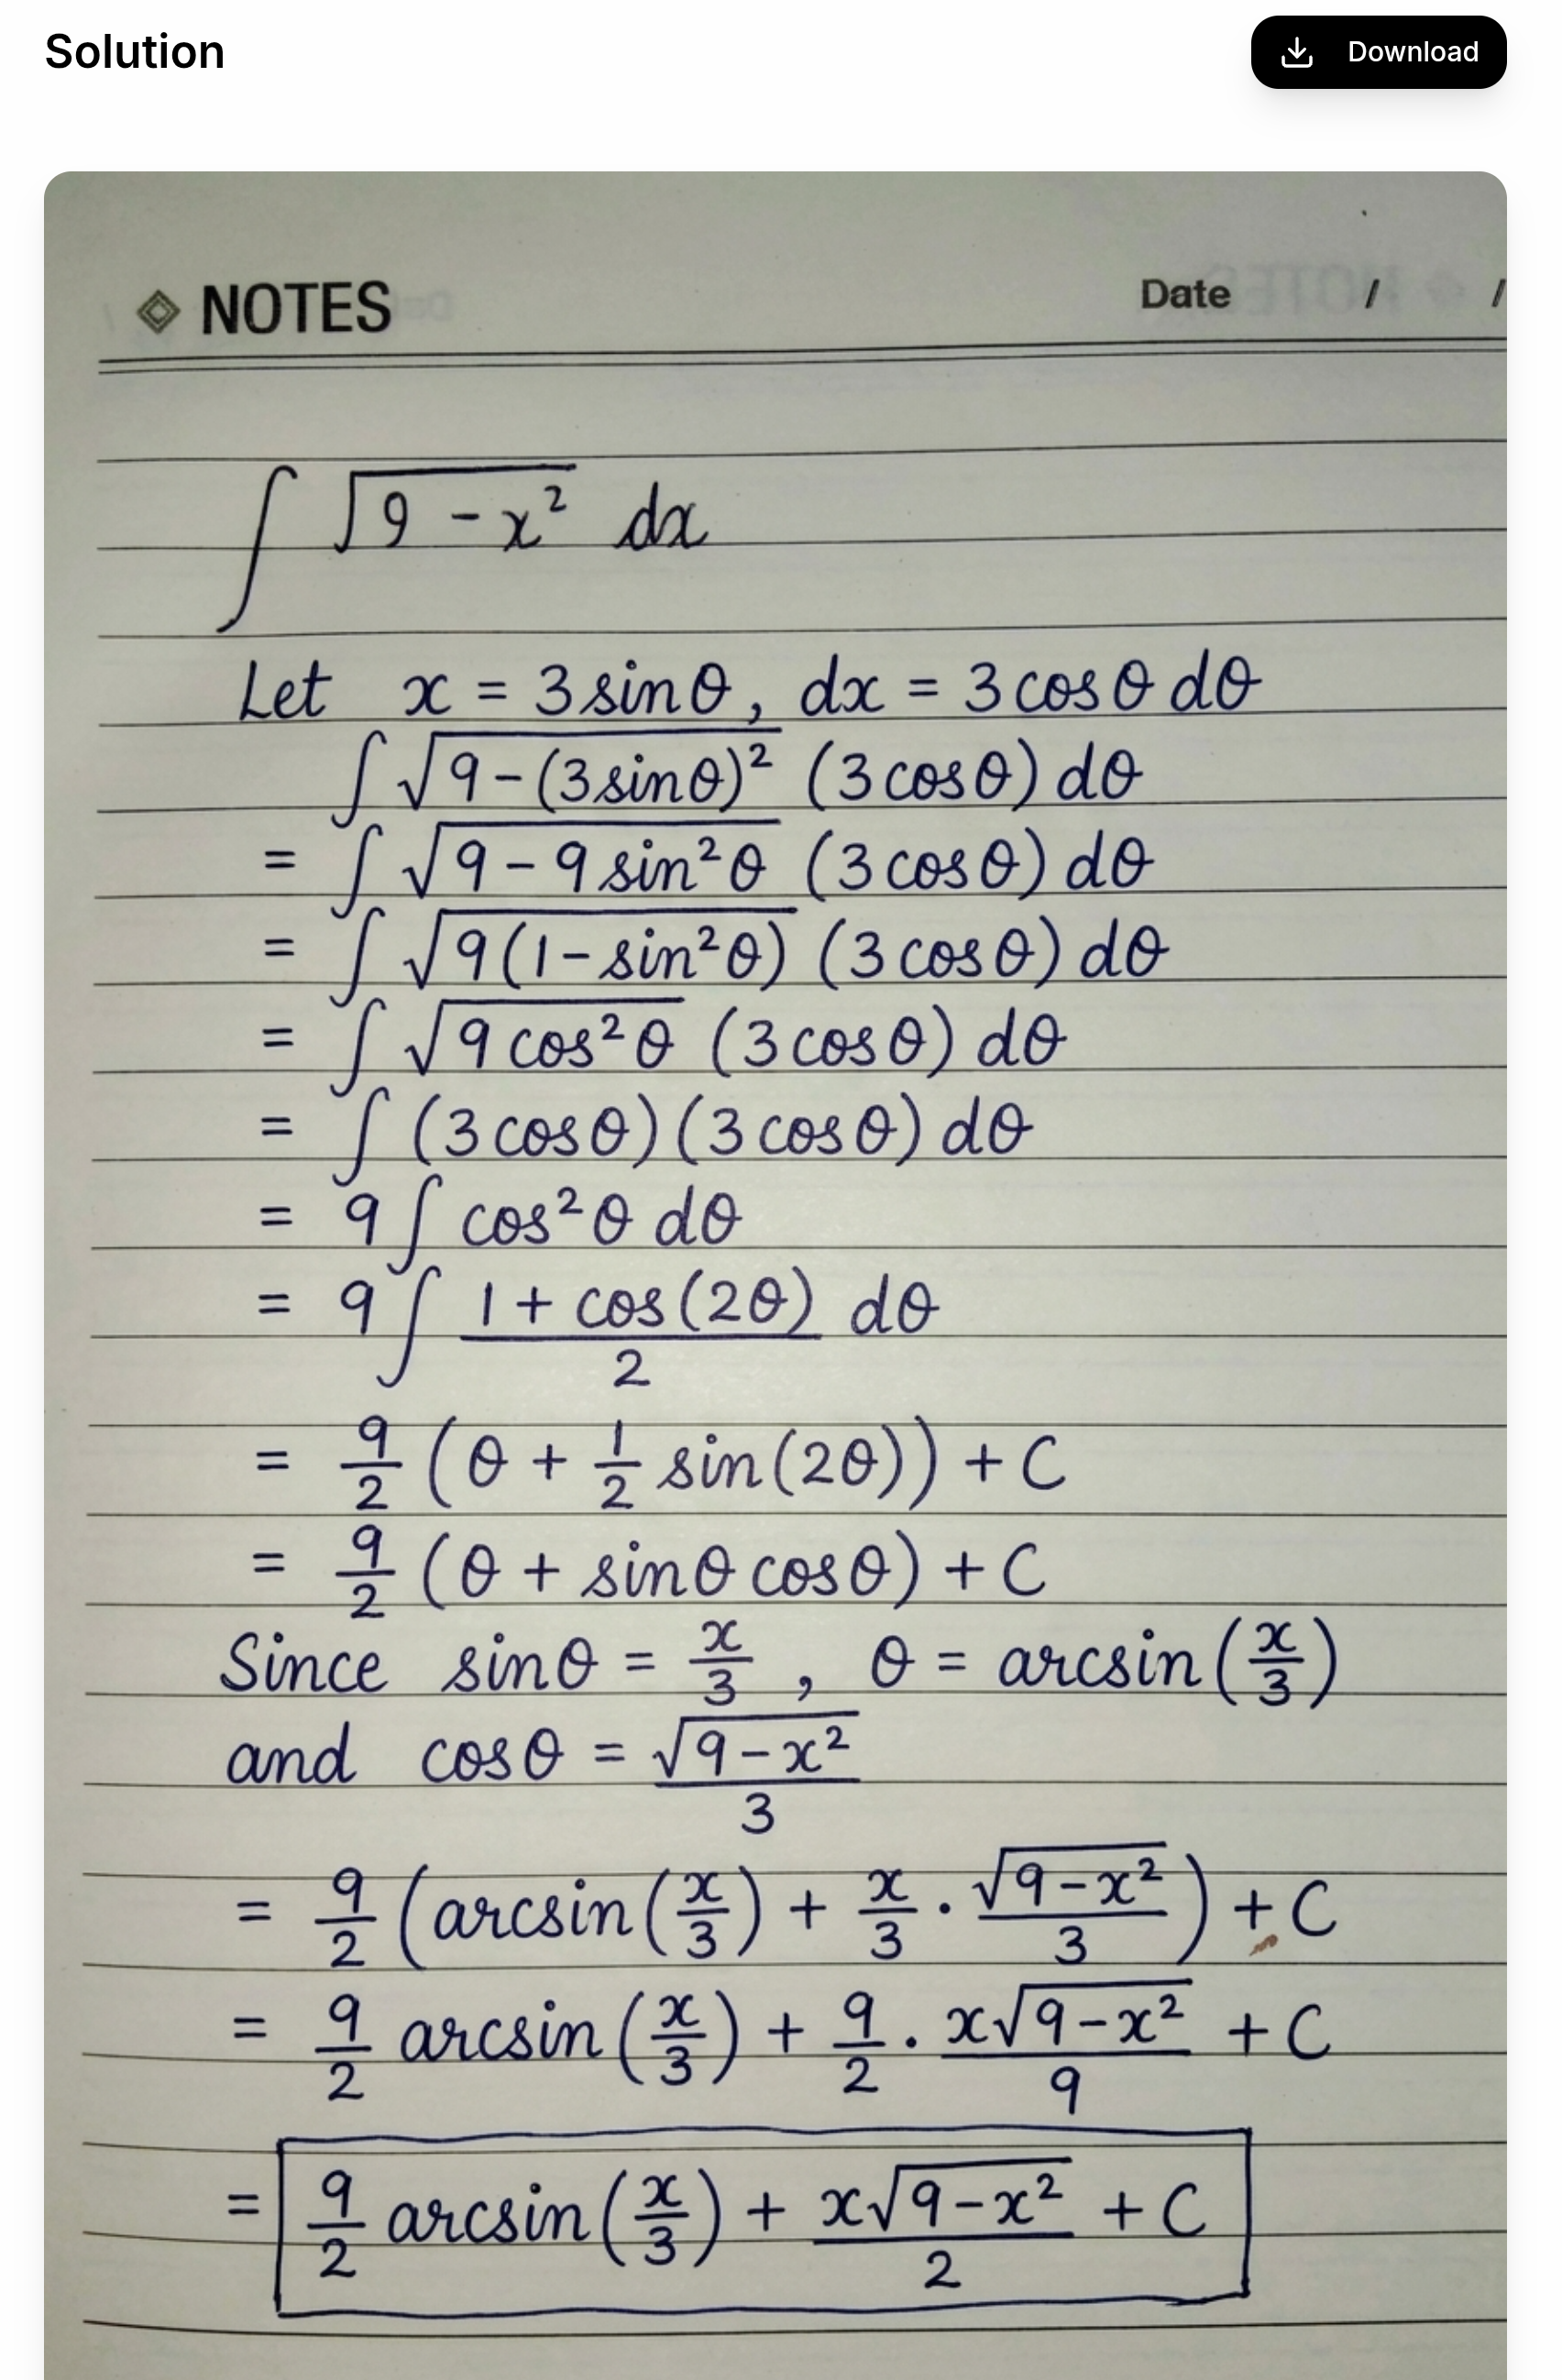 Solution
Download
NOTES
Date / /
∫ √(9 - x²) dx
Let x = 3 sinθ, dx = 3 cosθ dθ
∫ √(9 - (3 sinθ)²) (3 cosθ) dθ
= ∫ √(9 - 9 sin²θ) (3 cosθ) dθ
= ∫ √(9(1 - sin²θ)) (3 cosθ) dθ
= ∫ √(9 cos²θ) (3 cosθ) dθ
= ∫ (3 cosθ)(3 cosθ) dθ
= 9 ∫ cos²θ dθ
= 9 ∫ (1 + cos(2θ))/2 dθ
= 9/2 (θ + 1/2 sin(2θ)) + C
= 9/2 (θ + sinθ cosθ) + C
Since sinθ = x/3 , θ = arcsin(x/3)
and cosθ = √(9 - x²)/3
= 9/2 (arcsin(x/3) + x/3 · √(9 - x²)/3) + C
= 9/2 arcsin(x/3) + 9/2 · x√(9 - x²)/9 + C
= 9/2 arcsin(x/3) + x√(9 - x²)/2 + C